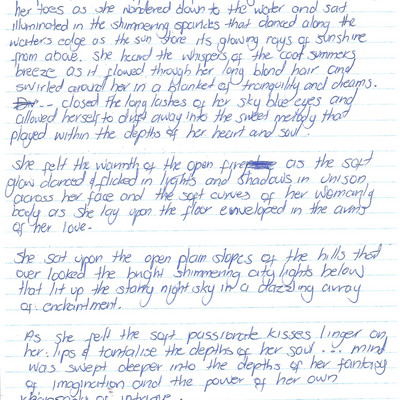 her toes as she wondered down to the water and sat
illuminated in the shimmering sparkles that danced along the
waters edge as the sun shone its glowing rays of sunshine
from above. She heard the whispers of the cool summers
breeze as it flowed through her long blond hair and
swirled around her in a blanket of tranquility and dreams.
closed the long lashes of her sky blue eyes and
allowed herself to drift away into the sweet melody that
played within the depths of her heart and soul.
She felt the warmth of the open fire as the soft
glow danced & flicked in lights and shadows in unison
across her face and the soft curves of her womanly
body as she lay upon the floor enveloped in the arms
of her love.
She sat upon the open plain slopes of the hills that
over looked the bright shimmering city lights below
that lit up the starry night sky in a dazzling array
of enchantment.
As she felt the soft passionate kisses linger on
her lips & tantalise the depths of her soul ... mind
was swept deeper into the depths of her fantasy
of imagination and the power of her own
of intrigue.